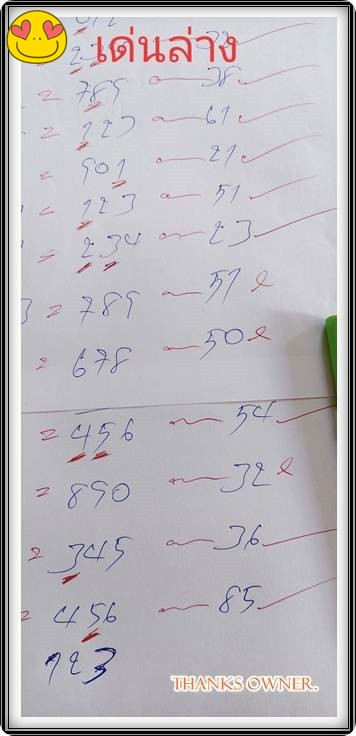 เด่นล่าง
= 789 — 38
= 123 — 61
= 901 — 21
= 123 — 51
= 234 — 23
= 789 — 51
= 678 — 50
= 456 — 54
= 890 — 32
= 345 — 36
= 456 — 85
123
THANKS OWNER.